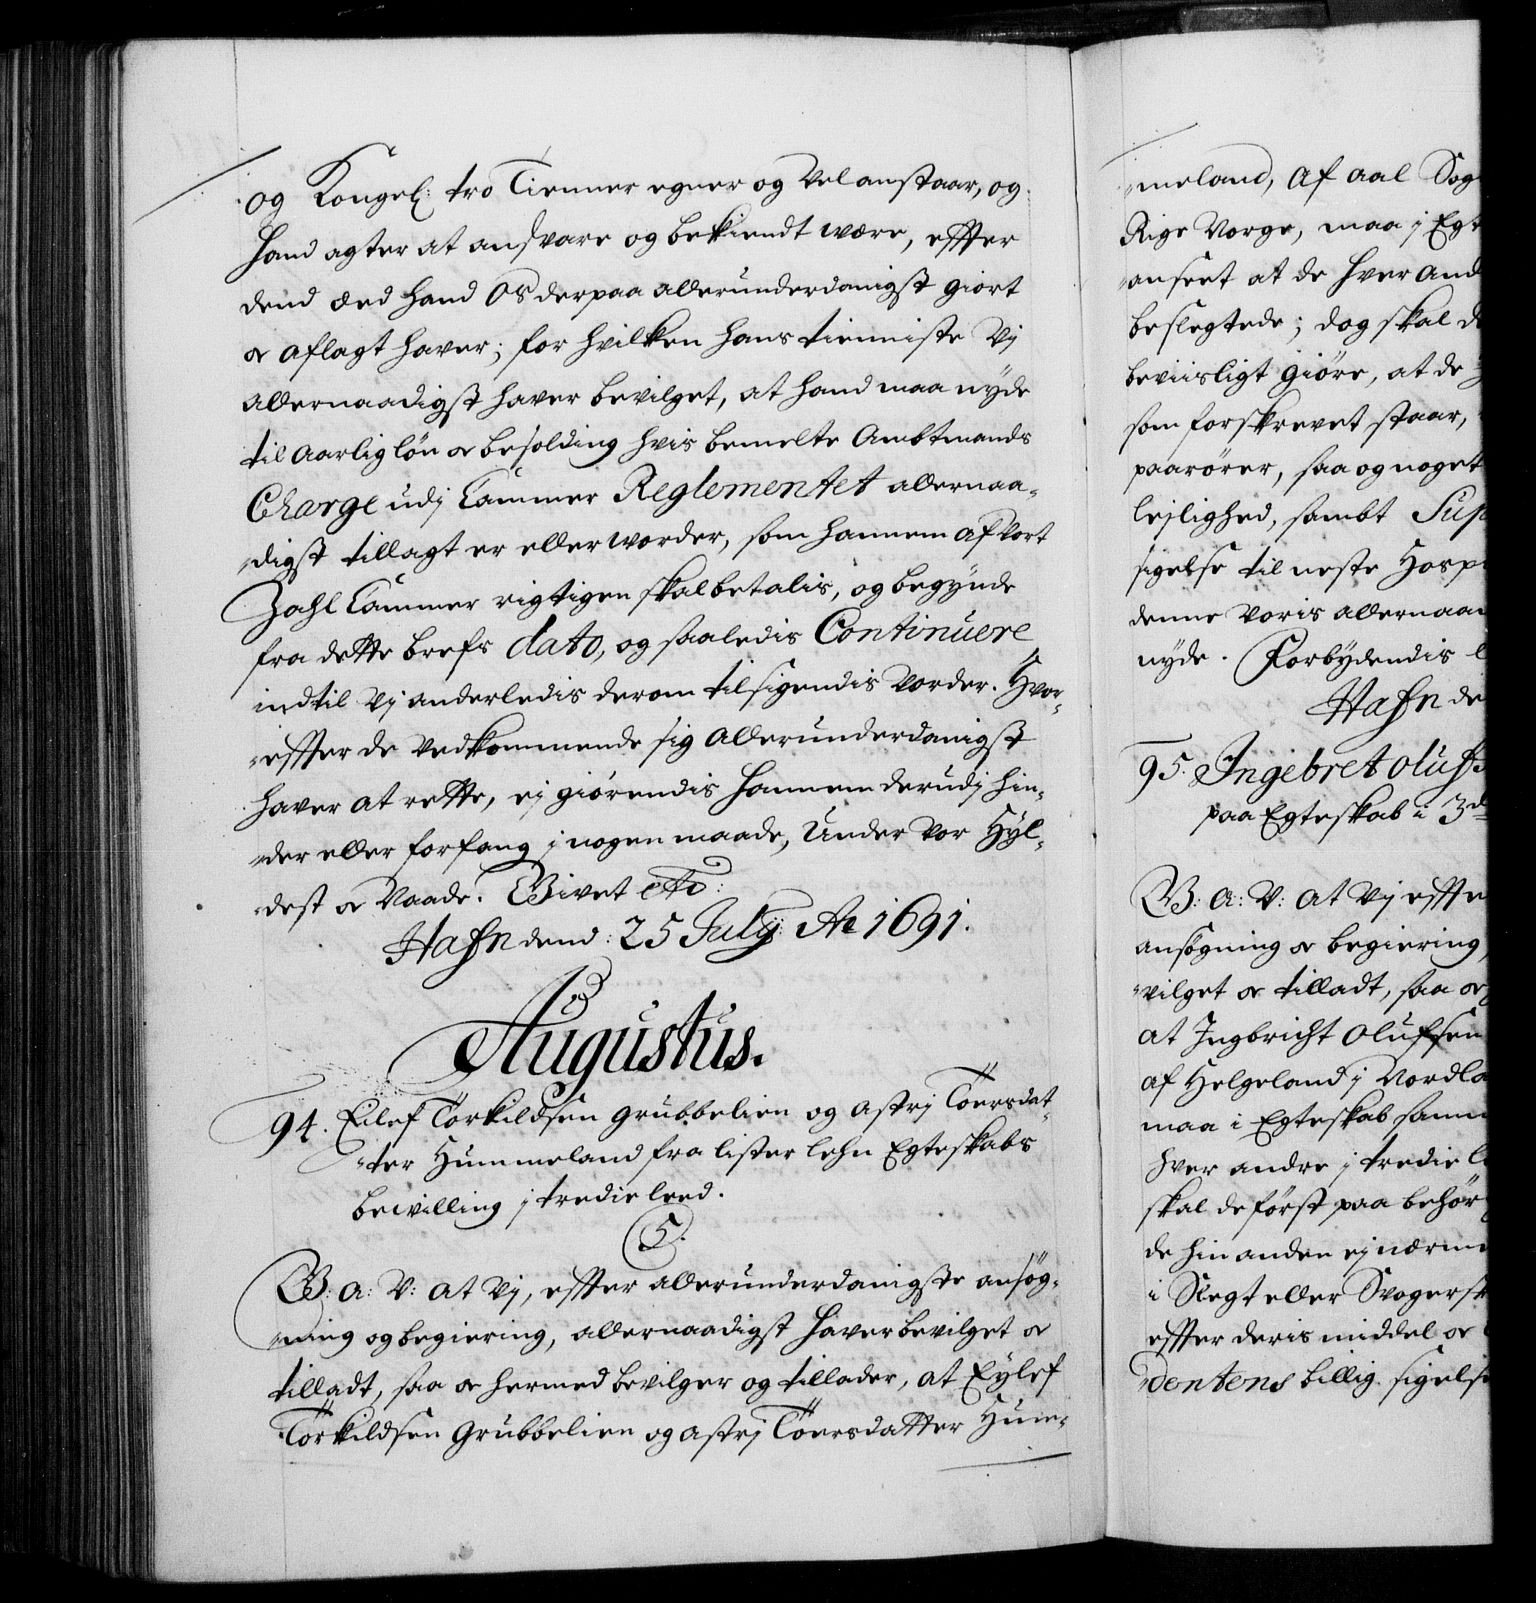 og Kongel: tro Tienner egner og vel anstaar, og
hand agter at andsvare og bekiendt være, effter
dend æed hand Os derpaa allerunderdanigst giort
oc aflagt haver; for hvilken hans tienniste Vj
allernaadigst haver bevilget, at hand maa nyde
til aarlig lön oc besolding hvis bemelte Ambtmands
Charge udj Cammer Reglementet allernaa-
digst tillagt er eller worder, som hannem af Vort
Zahl Cammer rigtigen skal betalis, og begynde
fra dette brefs dato, og saaledis Continuere
indtil Vj anderledis derom tilsigendis vorder. Hvor-
effter de vedkommende sig allerunderdanigst
haver at rette, ej giörendis hannem derudj hin-
der eller forfang j nogen maade, Under vor Hyl-
dest oc Naade. Givet etc:
Hafn dend: 25 July Ao 1691.
Augustus.
94. Eilef Torkildsen Grubbelien og Astrj Toersdat-
ter Hummeland fra lister lehn Egteskabs
bewilling j tredie leed.
5.
G: A: V: at Vj, effter allerunderdanigste ansög-
ning og begiering, allernaadigst haver bevilget oc
tilladt, saa oc hermed bevilger og tillader, at Eylef
Torkildsen Grubbelien og Astrj Toersdatter Hum-
meland, af aal Sog
Rige Norge, maa j Egt
anseet at de hver and
beslegtede; dog skal d
beviisligt giöre, at de
som forskrevet staar,
paarörer, saa og noget
lejlighed, sambt Sup
sigelse til neste Hosp
denne voris allernaa
nyde. Forbydendis
Hafn de
95. Ingebret olufs
paa Egteskab i 3d
G: A: V: at Vj effte
ansögning oc begiering,
vilget oc tilladt, saa oc
at Ingbricht olufsen
af Helgeland j Nordla
maa i Egteskab samm
hver andre j tredie l
skal de först paa behör
de hin anden ej nærm
i Slegt eller Svogersk
effter deris middel oc
dentens billig sigelse